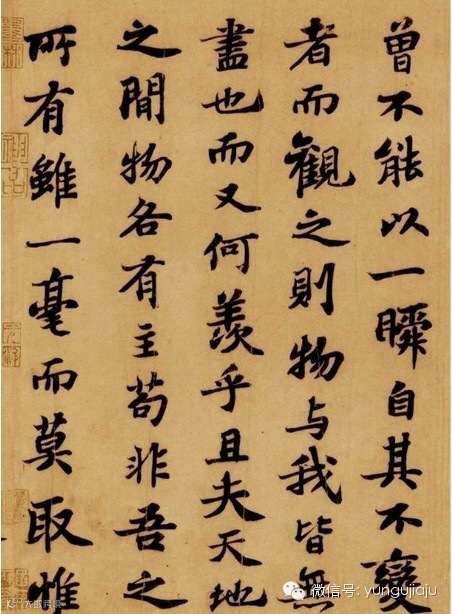 曾不能以一瞬自其不變
者而觀之則物与我皆無
盡也而又何羨乎且夫天地
之間物各有主苟非吾之
所有雖一毫而莫取惟
微信号: yungujiaju
大数跨境